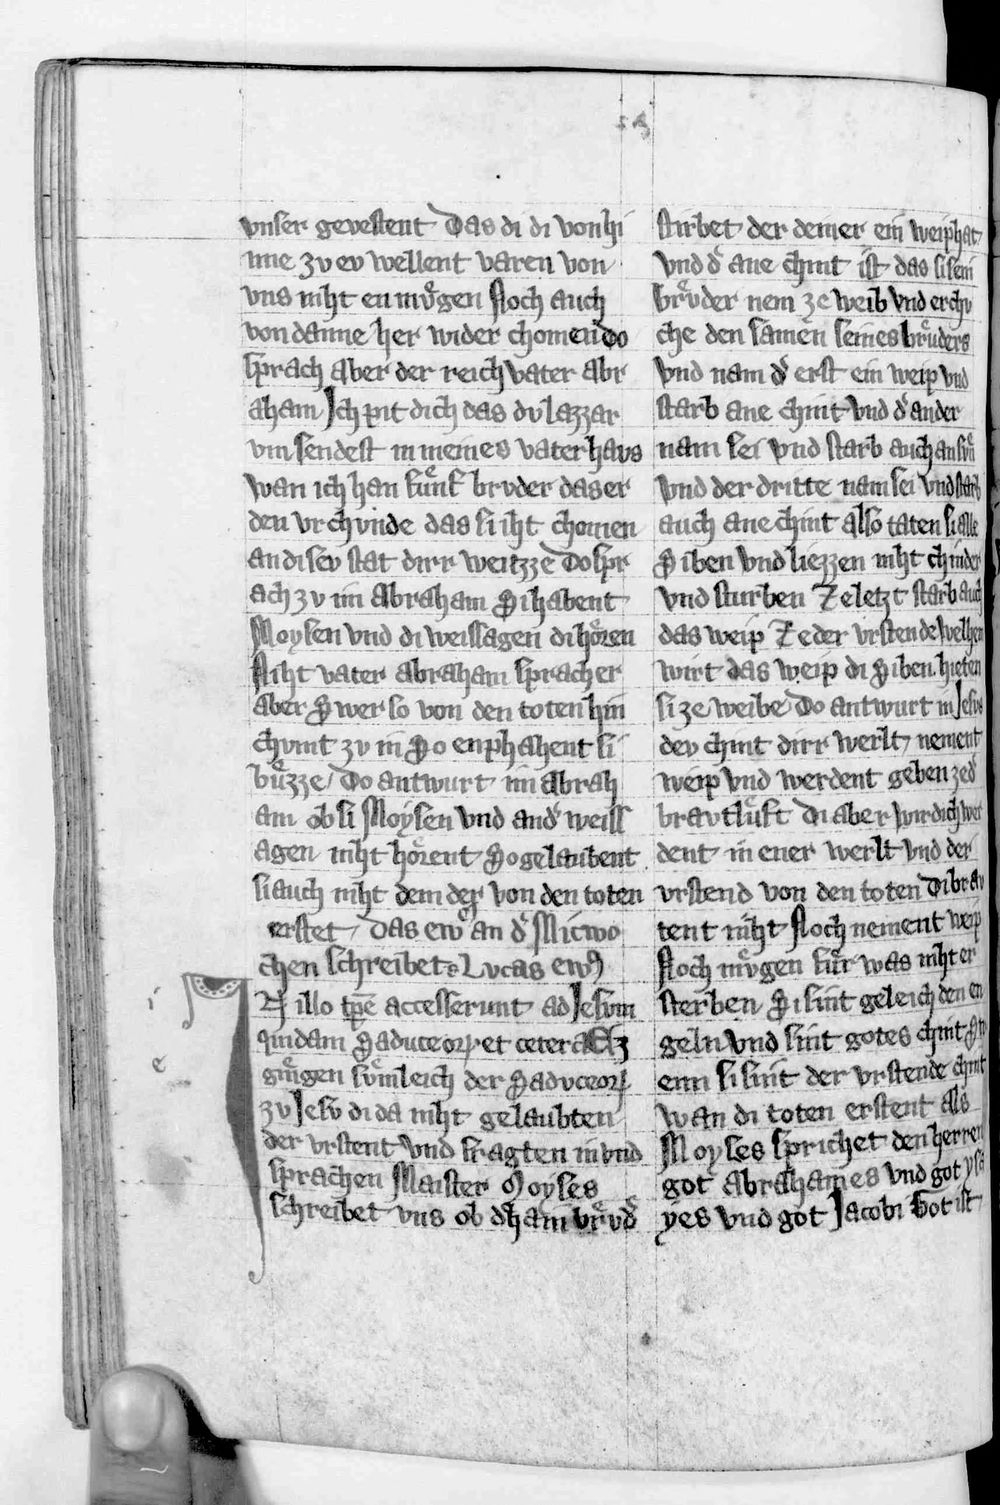 vnser gevestent Das di di von hi
nne zv ev wellent varen von
vns niht en mvͤgen Noch auch
von danne her wider chomen do
sprach Aber der reich vater Abr
aham Ich pit dich das dv lazzar
vm sendest in meines vater havs
wan ich han fuͤnf brvder das er
den vrchvnde das si iht chomen
an disev stat dirr weitzze Do spr
ach zv im Abraham Si habent
Moysen vnd di weissagen di hoͤren
Niht vater abraham sprach er
aber Swer so von den toten hin
chvmt zv in So enphahent si
bvͤzze Do antwurt im Abrah
am ob si Moysen vnd andˀ weiss
agen niht hoͤrent So gelaubent
si auch niht dem der von den toten
erstet Das ewˀ an dˀ Mitwo
chen schreibet s Lvcas ewˀ
IN illo tp̄e accesserunt ad Jesvm
quidam Saduceoꝝ et cetera Ez
giͤngen svͤmleich der Sadvceoꝝ
zv Jesv di da niht gelaubten
der vrstent vnd fragten in vnd
sprachen Maister Moyses
schreibet vns ob dˀhain brvͤdˀ
stirbet der deiner ein weip hat
vnd dˀ ane chint ist das si sein
brvͤder nem ze weib vnd erchv
che den samen seines bruͤders
vnd nam dˀ erst ein weip vnd
starb ane chint vnd dˀ ander
nam sei vnd starb auch an svͤn
vnd der dritte nam sei vnd starb
auch ane chint also taten si alle
Siben vnd liezzen niht chinder
vnd sturben Zeletzt starb auch
das weip Ze der vrstende welhen
wirt das weip di Siben hieten
si ze weibe Do antwurt in Jesus
dev chint dirr werlt nement
weip vnd werdent geben ze dˀ
bravtluͤft Di aber wirdich wer
dent in ener werlt vnd der
vrstend von den toten Di brav
tent niht Noch nement weip
Noch mvͤgen fuͤr was niht er
sterben Si sint geleich den en
geln vnd sint gotes chint Sw
enn si sint der vrstende chint
wan di toten erstent als
Moyses sprichet den herren
got Abrahames vnd got ysa
yes vnd got Jacobi Got ist
i
e